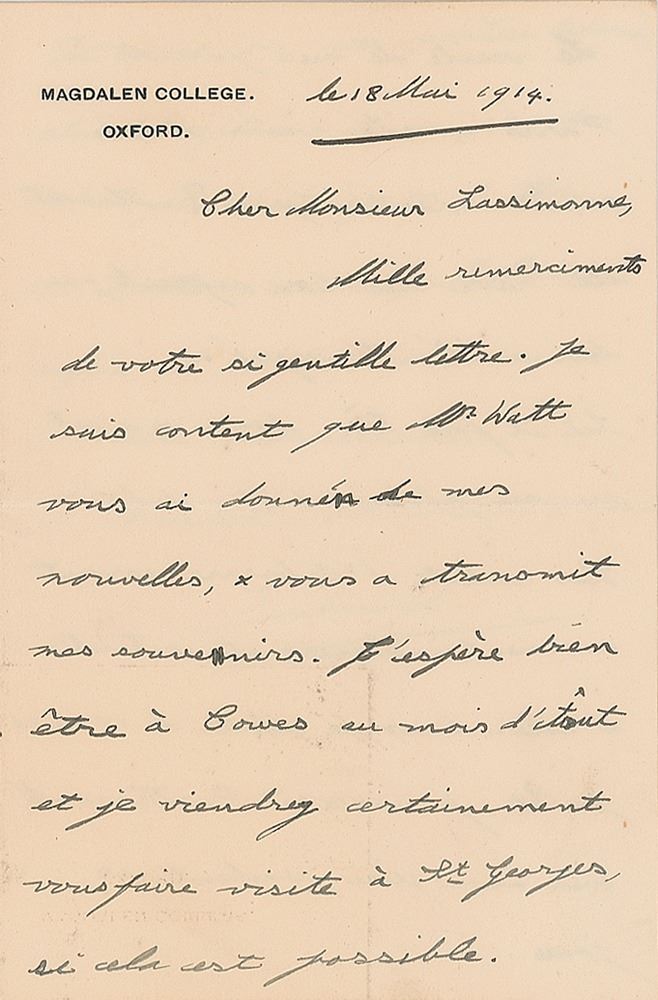 MAGDALEN COLLEGE.
OXFORD.
le 18 Mai 1914.
Cher Monsieur Lassimonne,
Mille remerciments
de votre si gentille lettre. Je
suis content que Mr Watt
vous ai donné de mes
nouvelles, & vous a transmit
mes souvenirs. J'espère bien
être à Cowes au mois d'
et je viendrey certainement
vous faire visite à St Georges,
si cela est possible.